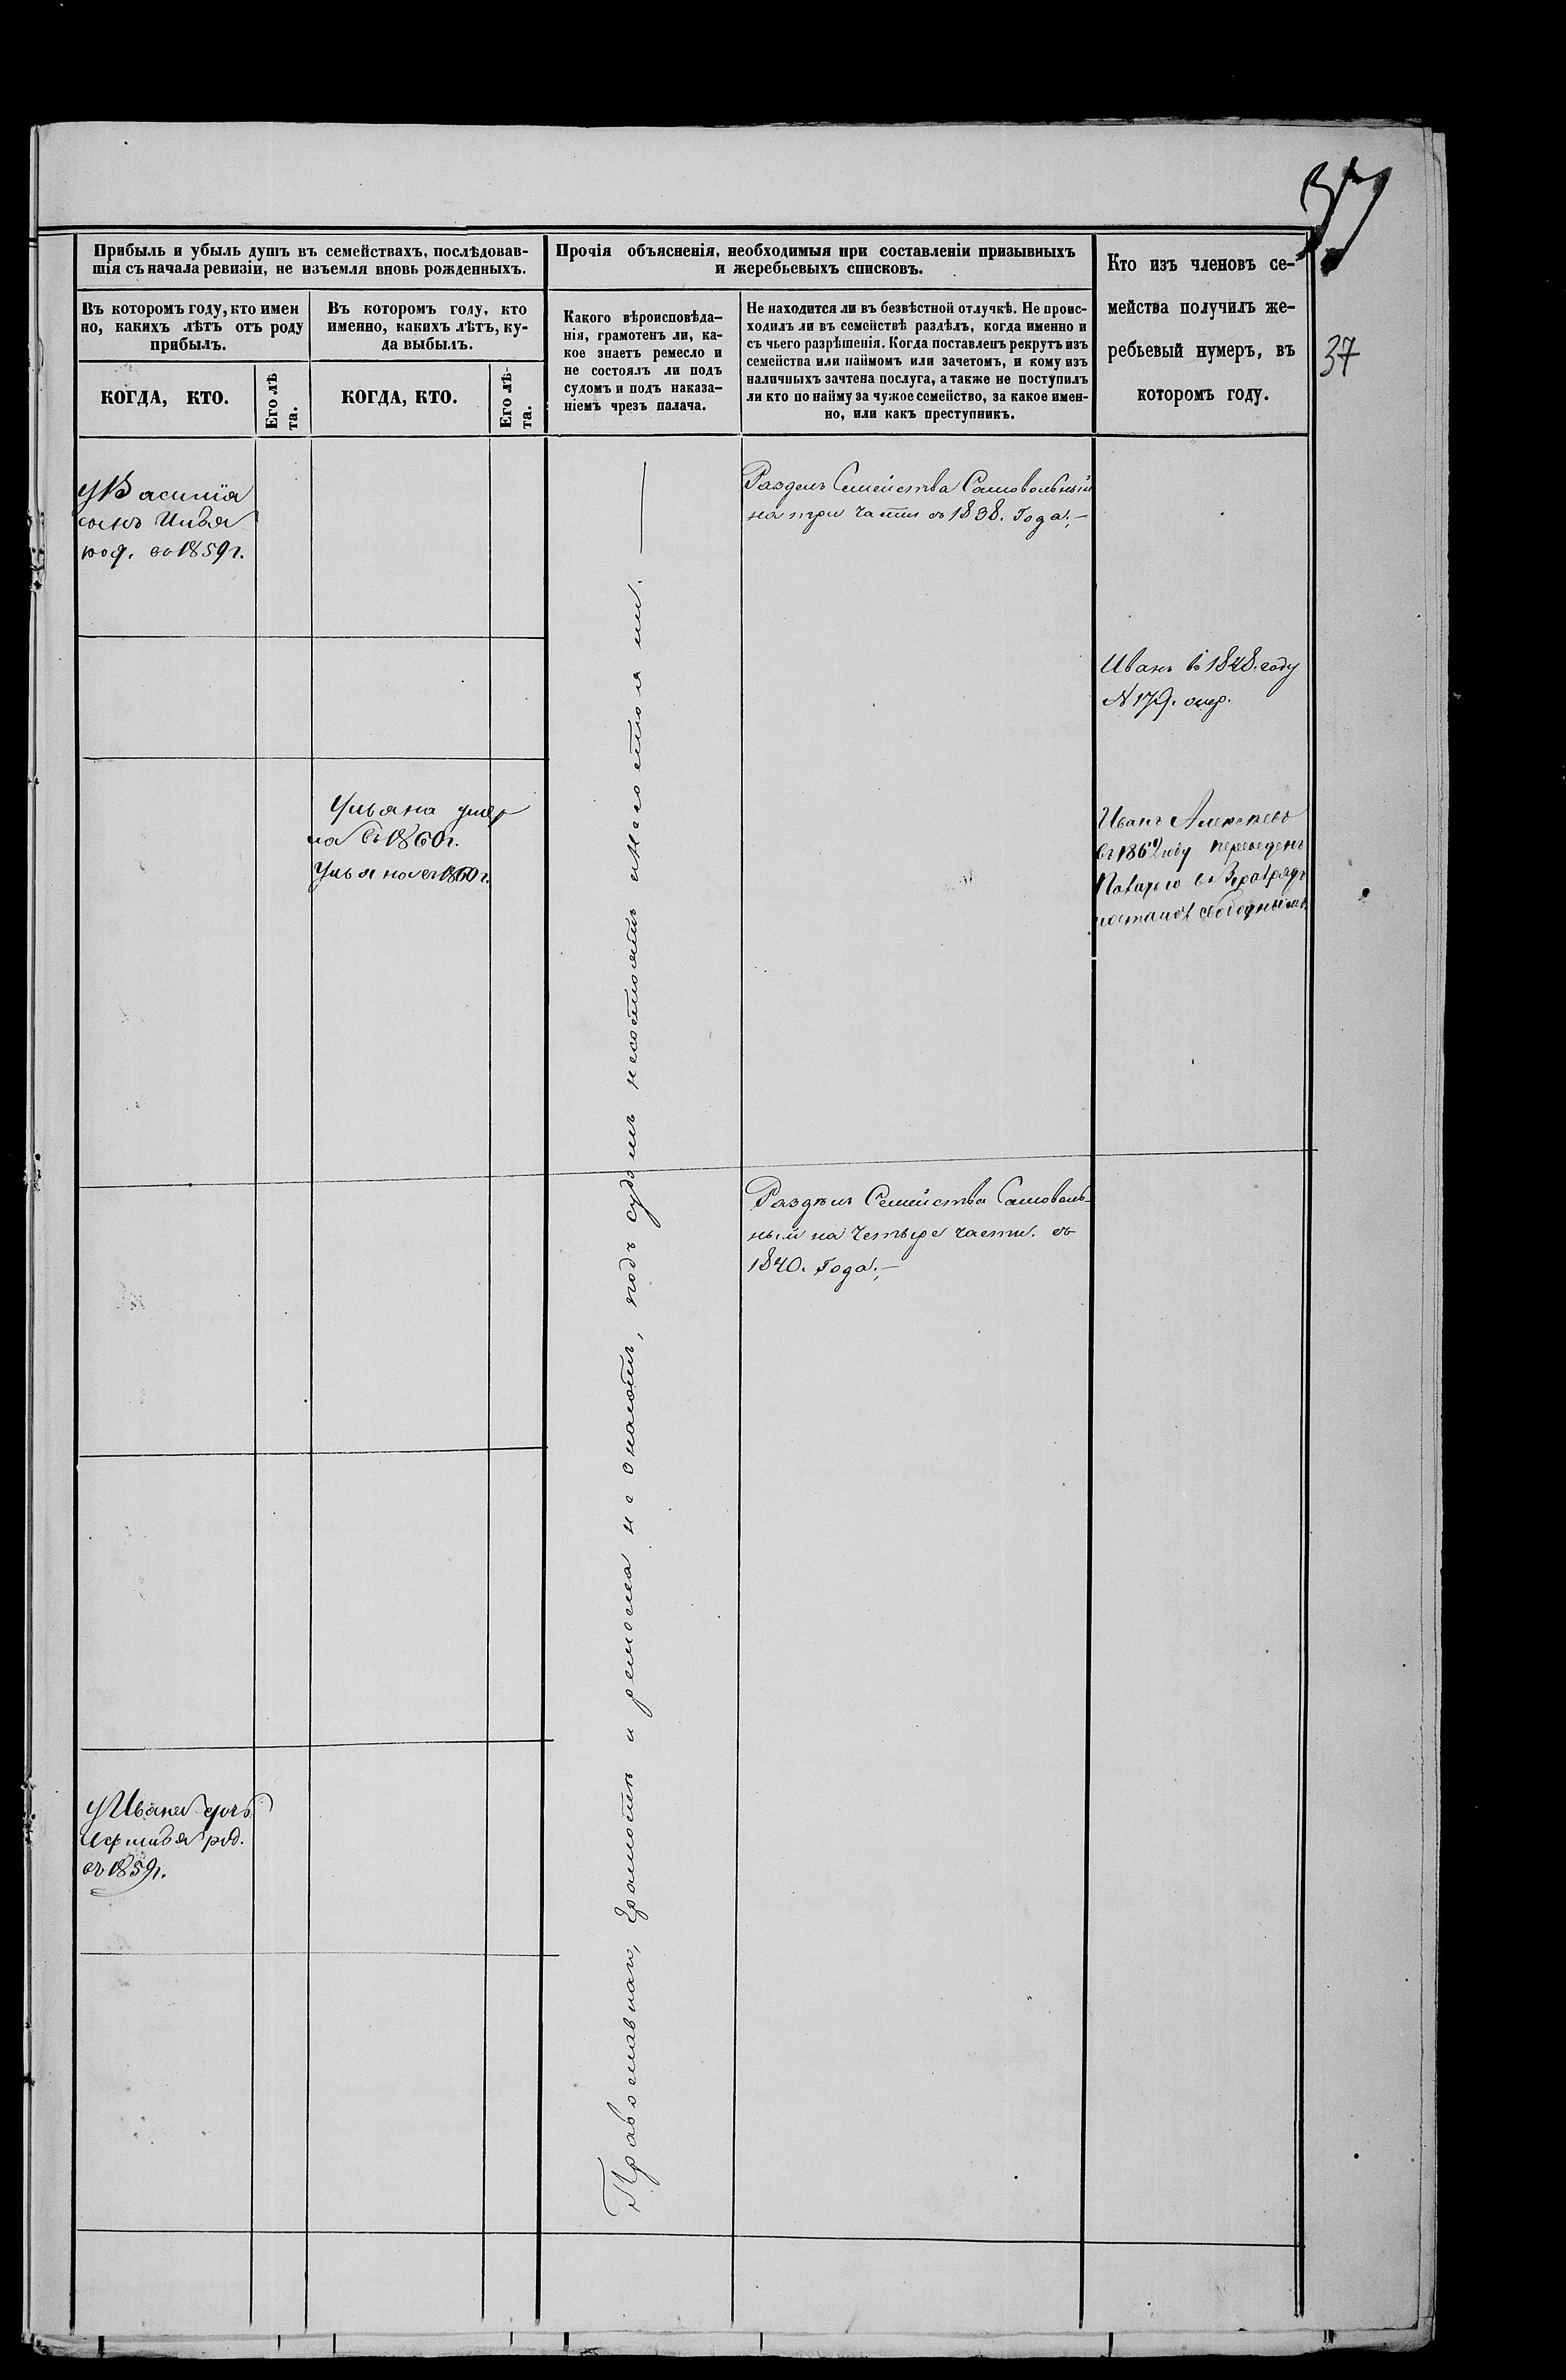 37
37
Прибыль и убыль душъ въ семействахъ, послѣдовав-
шія съ начала ревизіи, не изъемля вновь рожденныхъ.
Прочія объясненія, необходимыя при составленіи призывныхъ
и жеребьевыхъ списковъ.
Кто изъ членовъ се-
мейства получилъ же-
ребьевый нумеръ, въ
которомъ году.
Въ которомъ году, кто имен
но, какихъ лѣтъ отъ роду
прибылъ.
Въ которомъ году, кто
именно, какихъ лѣтъ, ку-
да выбылъ.
Какого вѣроисповѣда-
нія, грамотенъ ли, ка-
кое знаетъ ремесло и
не состоялъ ли подъ
судомъ и подъ наказа-
ніемъ чрезъ палача.
Не находится ли въ безвѣстной отлучкѣ. Не проис-
ходилъ ли въ семействѣ раздѣлъ, когда именно и
съ чьего разрѣшенія. Когда поставленъ рекрутъ изъ
семейства или наймомъ или зачетомъ, и кому изъ
наличныхъ зачтена послуга, а также не поступилъ
ли кто по найму за чужое семейство, за какое имен-
но, или какъ преступникъ.
КОГДА, КТО.
Его лѣ
та.
КОГДА, КТО.
Его лѣ-
та.
У Василія
сынъ Илья
род. въ 1859 г.
Раздел Семейства Самовольный
на три части съ 1838. Года.
Иванъ въ 1848. году
N 179.
Ульяна умер
ла въ 1860 г.
Ульяна въ 1860 г.
Иванъ Алексѣевъ
въ 1862 году переведенъ
свободнымъ
Православнаго, Грамотѣ и ремесла не знаютъ, подъ судомъ несостоятъ и несостояли.
Раздѣлъ Семейства Самоволь-
ный на Четыре части. съ
1840. Года.
У Ивана дочь
род.
въ 1859 г.